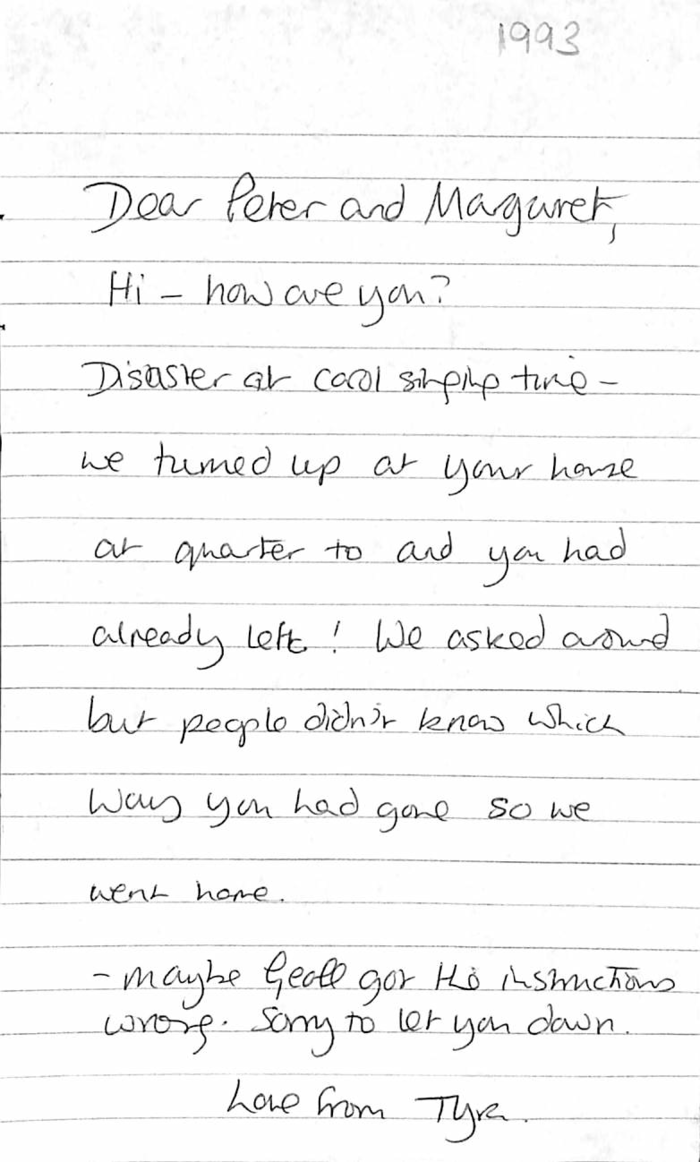 1993
Dear Peter and Margaret,
Hi - how are you?
Disaster at carol singing time -
we turned up at your house
at quarter to and you had
already left! We asked around
but people didn't know which
way you had gone so we
went home.
- maybe Geoff got the instructions
wrong. Sorry to let you down.
Love from Tyra.